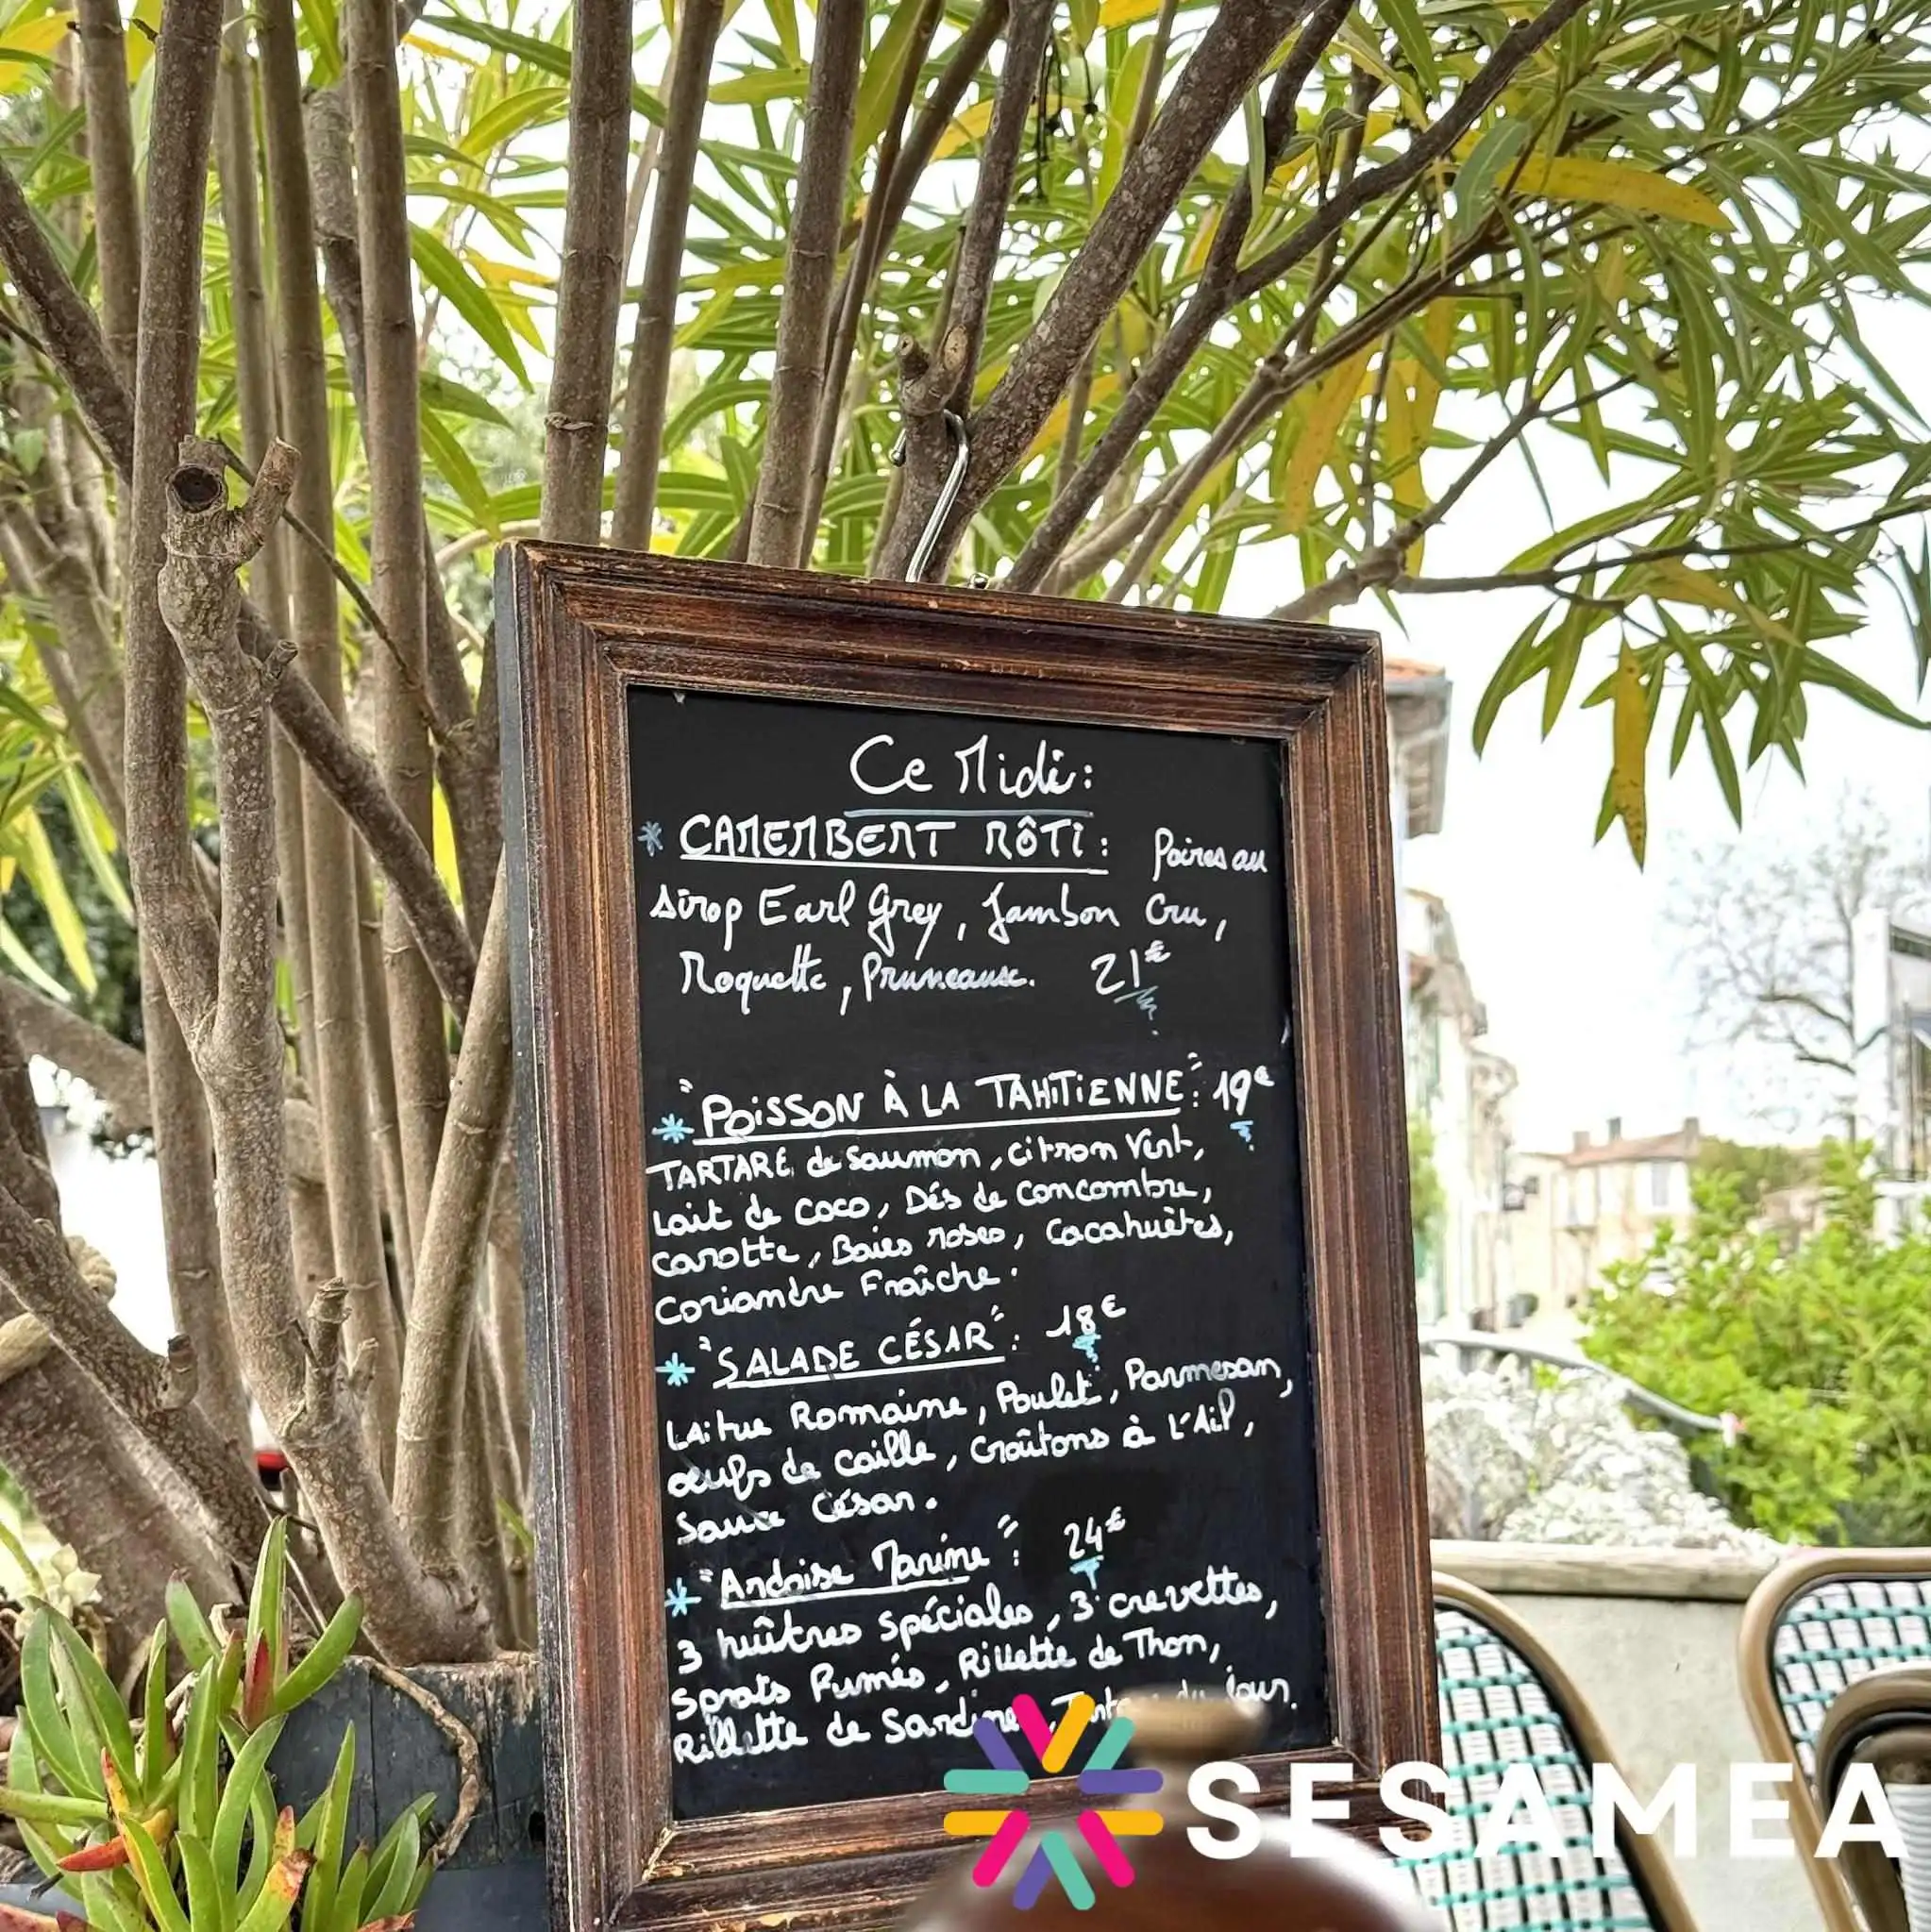 Ce Midi:
* CAMEMBERT RÔTI: Poires au
sirop Earl Grey, Jambon Cru,
Roquette, Pruneaux. 21€
* "POISSON À LA TAHITIENNE": 19€
TARTARE de Saumon, citron Vert,
Lait de coco, Dés de Concombre,
carotte, Baies roses, Cacahuètes,
Coriandre Fraîche.
* "SALADE CÉSAR": 18€
Laitue Romaine, Poulet, Parmesan,
œufs de caille, Croûtons à L'Ail,
Sauce César.
* "Ardoise Marine": 24€
3 huîtres spéciales, 3 crevettes,
Sprats Fumés, Rillette de Thon,
Rillette de Sardine, du jour.
SESAMEA